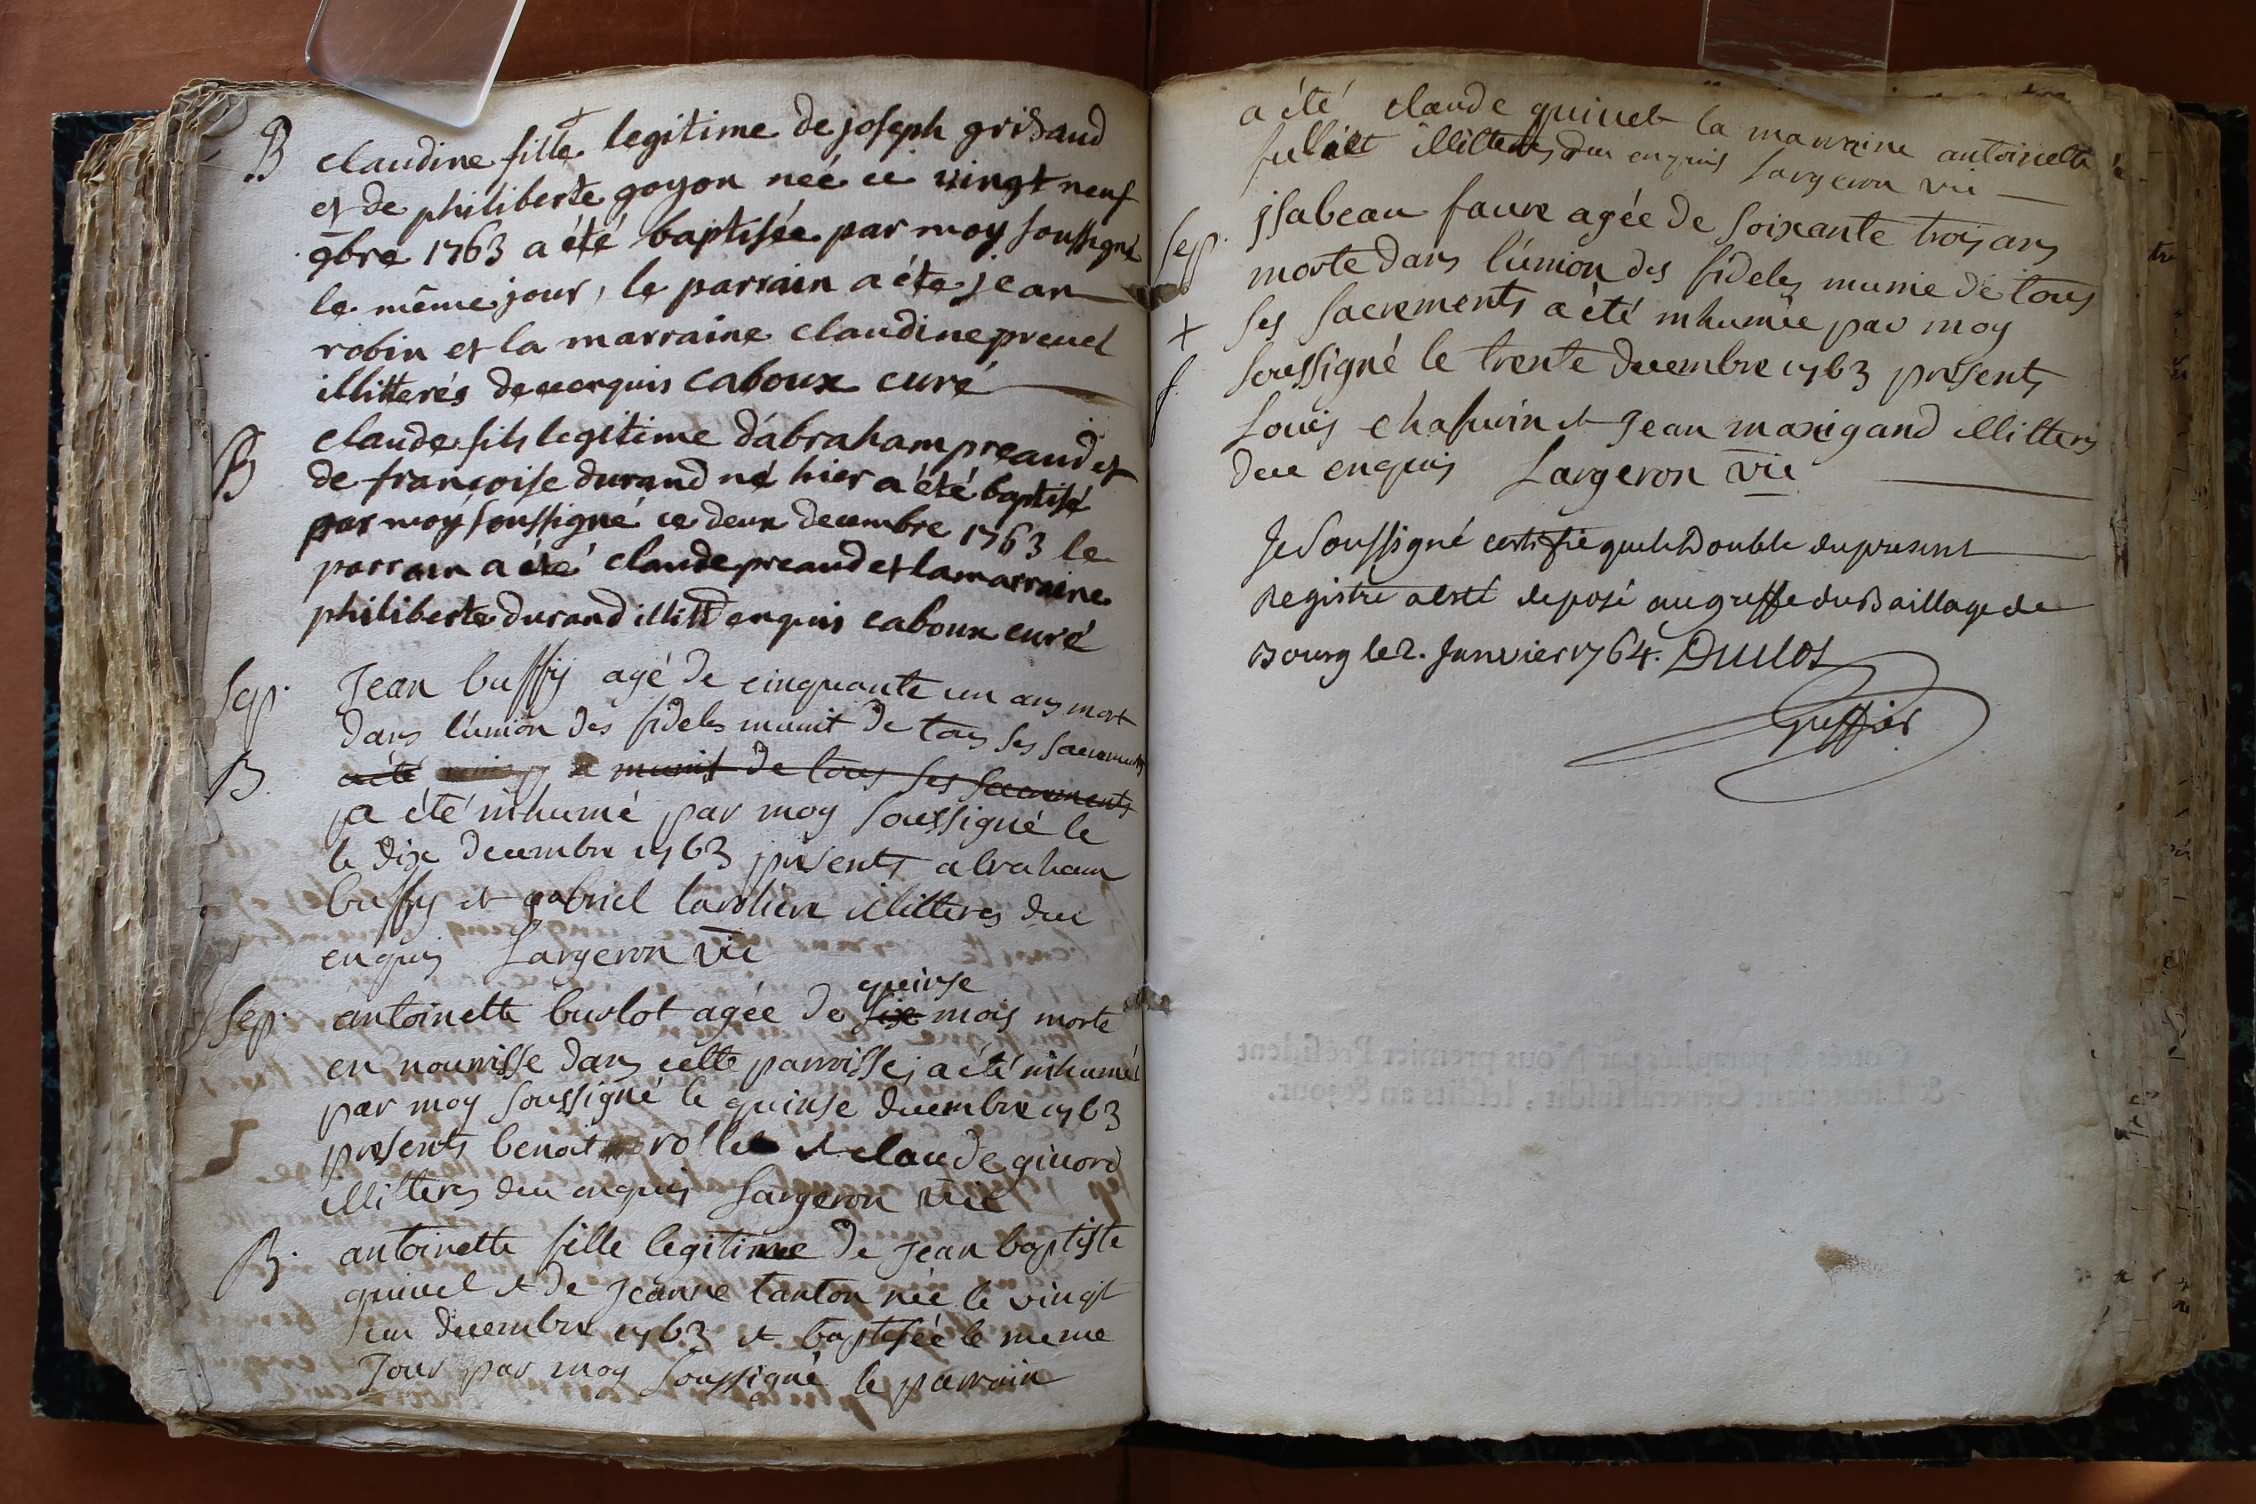 B claudine fille legitime de joseph grisaud
et de philiberte goyon née ce vingt neuf
9bre 1763 a été baptisée par moy soussigné
le même jour, le parrain a été jean
robin et la marraine claudine preuel
illitterés de ce enquis caboux curé
B claude fils legitime d'abraham preaud et
de françoise durand né hier a été baptisé
par moy soussigné ce deux decembre 1763 le
parrain a été claude preaud et la marraine
philiberte durand illitt enquis caboux curé
Sep. Jean buffy agé de cinquante un ans mort
dans l'union des fideles munit de tous ses sacrements
B. a été munit de tous ses sacrements
a été inhumé par moy soussigné le
le dix decembre 1763 présents abraham
buffy et gabriel tardien illitteres du
enquis Largeron vic
quinse
Sep. antoinette burlot agée de six mois morte
en nourisse dans cette parroisse, a été inhumée
par moy soussigné le quinse decembre 1763
presents benoit rollet et claude givord
illitteres du enquis Largeron vic
B. antoinette fille legitime de jean baptiste
quivel et de Jeanne tanton née le vingt
un decembre 1763 et baptisée le meme
Jour par moy soussigné le parrain
a été claude quivet la marraine antoinette
illitteres du enquis Largeron vic
Sep. jsabeau faure agée de soixante trois ans
morte dans l'union des fideles munie de tous
+ ses sacrements a été inhumée par moy
f. soussigné le trente decembre 1763 présents
Louis chafurin et Jean maxigand illitteres
du enquis Largeron vic
Je soussigné certiffie que le Double du present
Registre a esté deposé au greffe du Baillage de
Bourg le 2. Janvier 1764. Duclos
Greffier